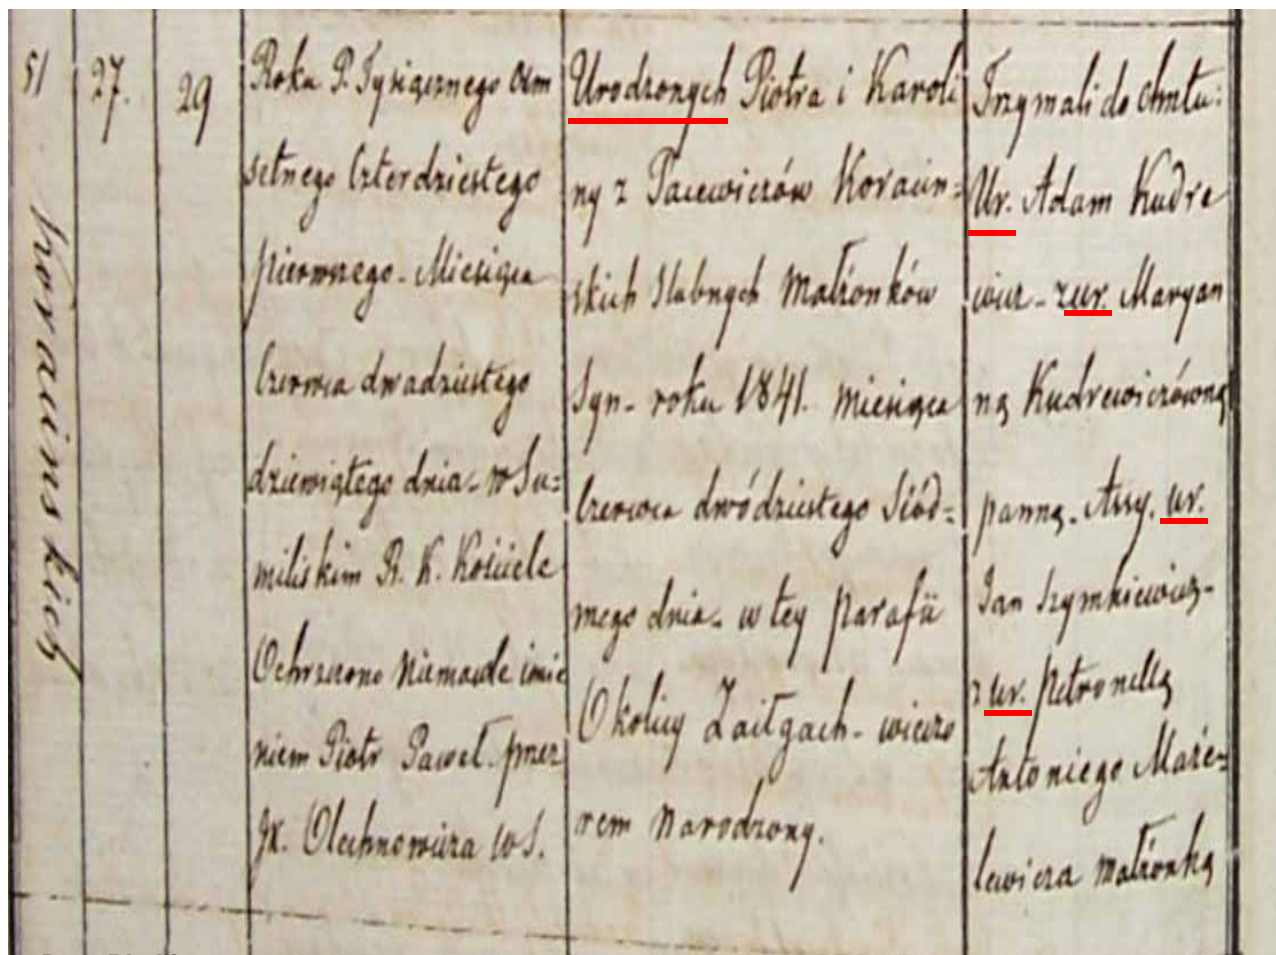 51
27.
29
Korawinskich
Roku P. Tysiącznego Osm
setnego Czterdziestego
pierwszego - Miesiąca
Czerwca dwadziestego
dziewiątego dnia - w Su=
miliskim R. K. Kościele
Ochrzczono Niemowle imie
niem Piotr Paweł. przez
JX. Olechnowicza W S.
Urodzonych Piotra i Karoli
ny z Pacewiczów Korawin=
skich Slubnych Małżonków
Syn - roku 1841. Miesiąca
Czerwca dwódziestego Siód=
mego dnia - w tey Parafii
Okolicy Zaiłgach - wieczo
rem Narodzony.
Trzymali do Chrztu:
Ur. Adam Kudre
wicz - z ur. Maryan
ną Kudrewiczówną
panną - Assy. ur.
Jan Szymkiewicz -
z ur. Petronellą
Antoniego Mace=
lewicza Małżonką